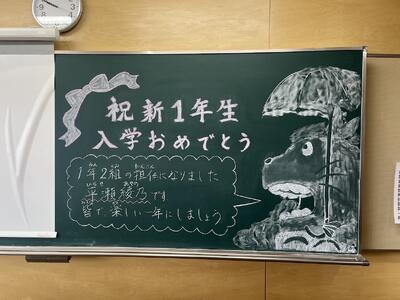 祝新1年生
入学おめでとう
1年2組の担任になりました
瀬綾乃です
皆で、楽しい一年にしましょう